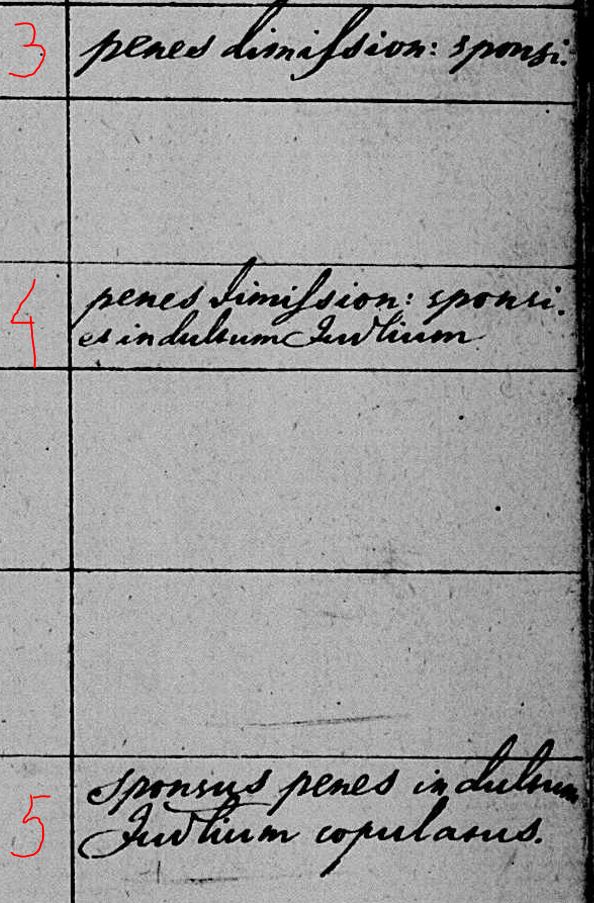 3 penes dimission: sponsi.
4 penes dimission: sponsi.
et indultum Iudlium
5 sponsus penes indultum
Iudlium copulatus.